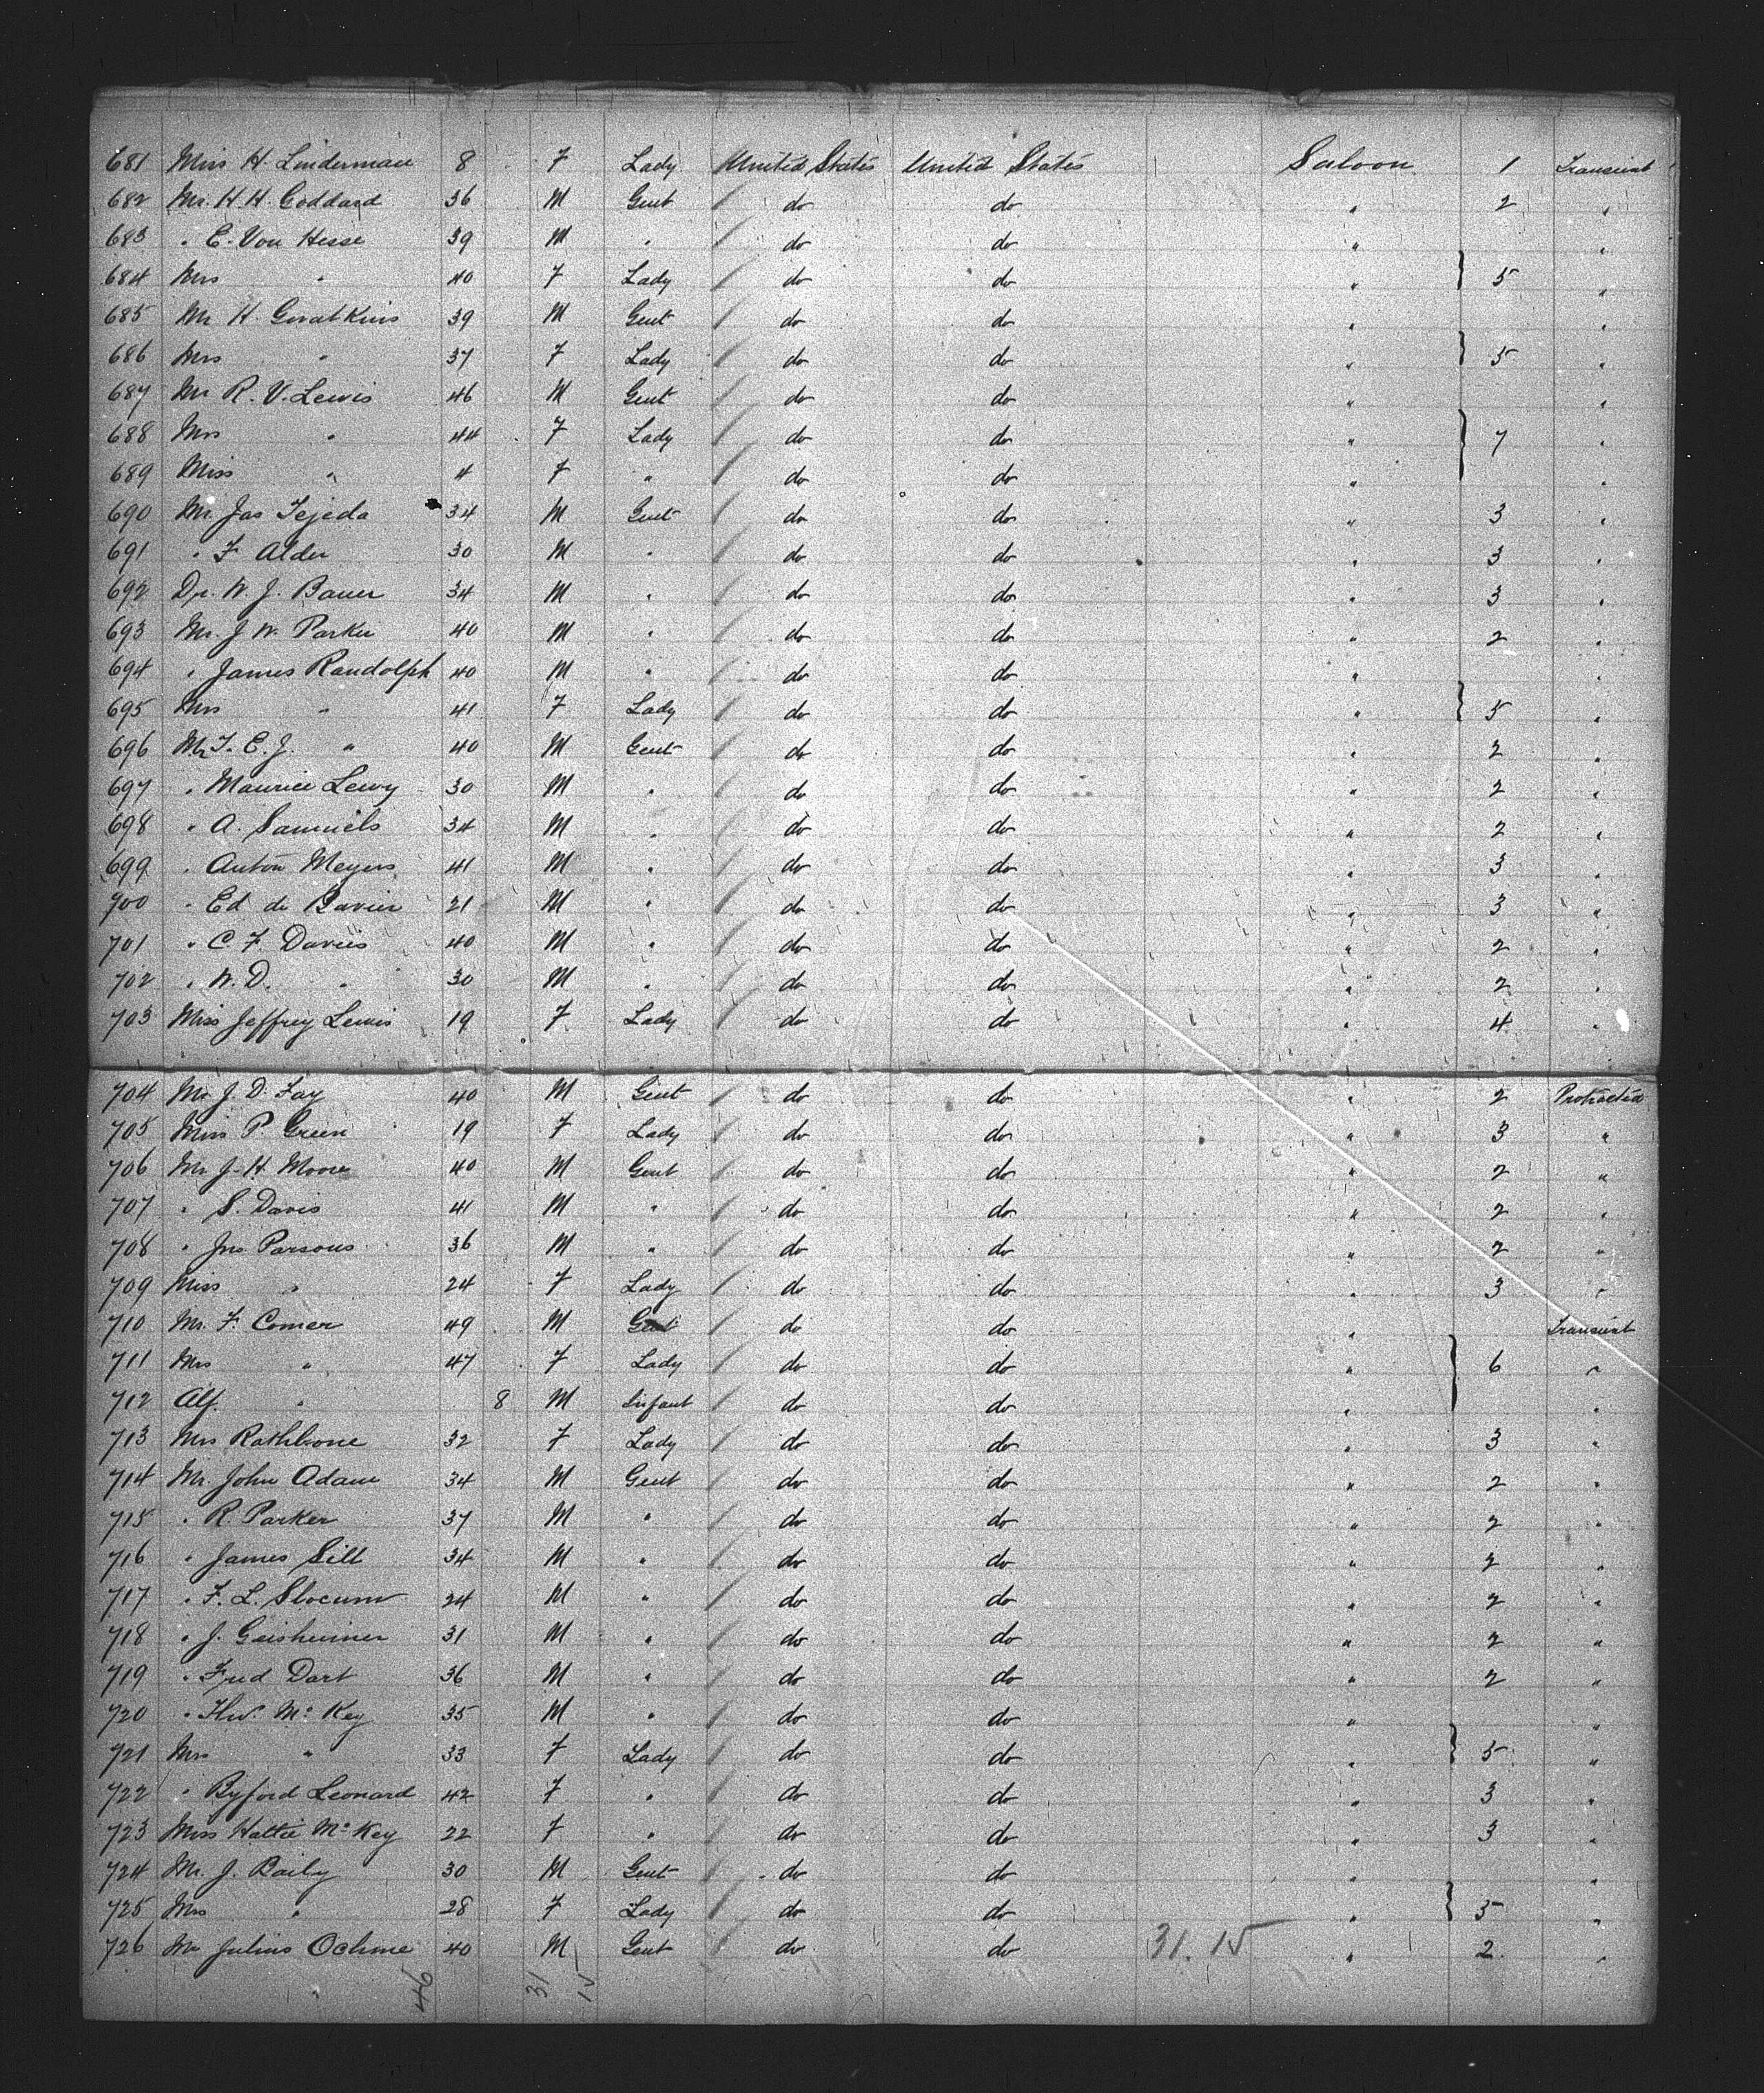 681 Miss H. Linderman 8 F Lady United States United States Saloon 1 Transient
682 Mr. H. H. Goddard 36 M Gent do do " 2 "
683 " E. Von Hesse 39 M " do do " "
684 Mrs " 40 F Lady do do " } 5 "
685 Mr H 39 M Gent do do " "
686 Mrs " 37 F Lady do do " } 5 "
687 Mr R. V. Lewis 46 M Gent do do " "
688 Mrs " 44 F Lady do do " } 7 "
689 Miss " 4 F " do do " "
690 Mr. Jas Tejeda 34 M Gent do do " 3 "
691 " F Alder 30 M " do do " 3 "
692 Dr. W. J. Bauer 34 M " do do " 3 "
693 Mr. J W. Parker 40 M " do do " 2 "
694 " James Randolph 40 M " do do " "
695 Mrs " 41 F Lady do do " } 5 "
696 Mr T. E. J. " 40 M Gent do do " 2 "
697 " Maurice Lewy 30 M " do do " 2 "
698 " A. Samuels 34 M " do do " 2 "
699 " Anton Meyers 41 M " do do " 3 "
700 " Ed de Bavier 21 M " do do " 3 "
701 " C. F. Davies 40 M " do do " 2 "
702 " W. D. " 30 M " do do " 2 "
703 Miss Jeffrey Lewis 19 F Lady do do " 4 "
704 Mr J. D. Fay 40 M Gent do do " 2 Protracted
705 Miss P. Green 19 F Lady do do " 3 "
706 Mr J. H. Moore 40 M Gent do do " 2 "
707 " S. Davis 41 M " do do " 2 "
708 " Jno. Parsons 36 M " do do " 2 "
709 Miss " 24 F Lady do do " 3 "
710 Mr. F. Comer 49 M Gent do do " Transient
711 Mrs " 47 F Lady do do " } 6 "
712 Alf. " 8 M Infant do do " "
713 Mrs Rathbone 32 F Lady do do " 3 "
714 Mr. John Adam 34 M Gent do do " 2 "
715 " R. Parker 37 M " do do " 2 "
716 " James Sill 34 M " do do " 2 "
717 " F. L. Slocum 24 M " do do " 2 "
718 " J. Geisheimer 31 M " do do " 2 "
719 " Fred Dart 36 M " do do " 2 "
720 " Mc Key 35 M " do do " "
721 Mrs " 33 F Lady do do " } 5 "
722 " Byford Leonard 42 F " do do " 3 "
723 Miss Hattie Mc Key 22 F " do do " 3 "
724 Mr. J. Baily 30 M Gent do do " "
725 Mrs " 28 F Lady do do " } 5 "
726 Mr Julius Oehme 40 M Gent do do 31. 15 " 2 "
46 31 15